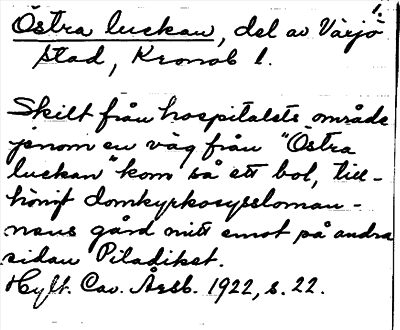 1.
Östra luckan, del av Växjö
stad, Kronob l.
Skilt från hospitalets område
jenom en väg från "Östra
luckan" kom så ett bol, till-
hörigt domkyrkosyssloman-
nens gård mitt emot på andra
sidan Piladiket.
Hylt. Cav. Årsb. 1922, s. 22.